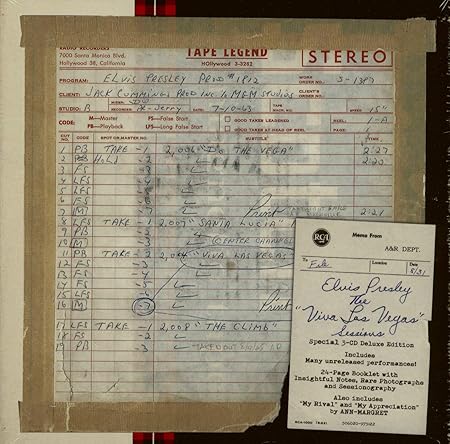 RADIO RECORDERS
7000 Santa Monica Blvd.
Hollywood 38, California
TAPE LEGEND
Hollywood 3-3282
STEREO
PROGRAM: ELVIS PRESLEY PROD #1812
WORK ORDER NO. 3-1387
CLIENT: JACK CUMMINGS PROD INC & MGM STUDIOS
CLIENT'S ORDER NO.
STUDIO: B
MIXER:
RECORDIST: Jerry
DATE: 7-10-63
TAPE MACH. NO.
SPEED: 15"
CODE: M—Master FS—False Start
PB—Playback LFS—Long False Start
GOOD TAKES LEADERED
GOOD TAKES AT HEAD OF REEL
REEL: 1-A
PAGE:
CUT NO. CODE SPOT OR MASTER NO. SUBTITLE TIME
1 PB TAKE -1 2,006 THE "VEGA" 2:27
2 HOLD -2 2:20
3 FS -3
4 LFS -4
5 LFS -5
6 FS -6
7 M -7 Print 2:21
8 LFS TAKE -1 2,007 "SANTA LUCIA"
9 PB -2
10 M -3 (CENTER CHANNEL
11 PB TAKE -2 2,004 "VIVA LAS VEGAS"
12 FS -3
13 FS -4
14 FS -5
15 LFS -6
16 M -7 Print
17 LFS TAKE -1 2,008 "THE CLIMB"
18 FS -2
19 PB -3
RCA
Memo From
A&R DEPT.
To File
Location
Date 8/31
Elvis Presley
The
"Viva Las Vegas"
Sessions
Special 3-CD Deluxe Edition
Includes
Many unreleased performances!
24-Page Booklet with
Insightful Notes, Rare Photographs
and Sessionography
Also includes
"My Rival" and "My Appreciation"
by ANN-MARGRET
506020-975122